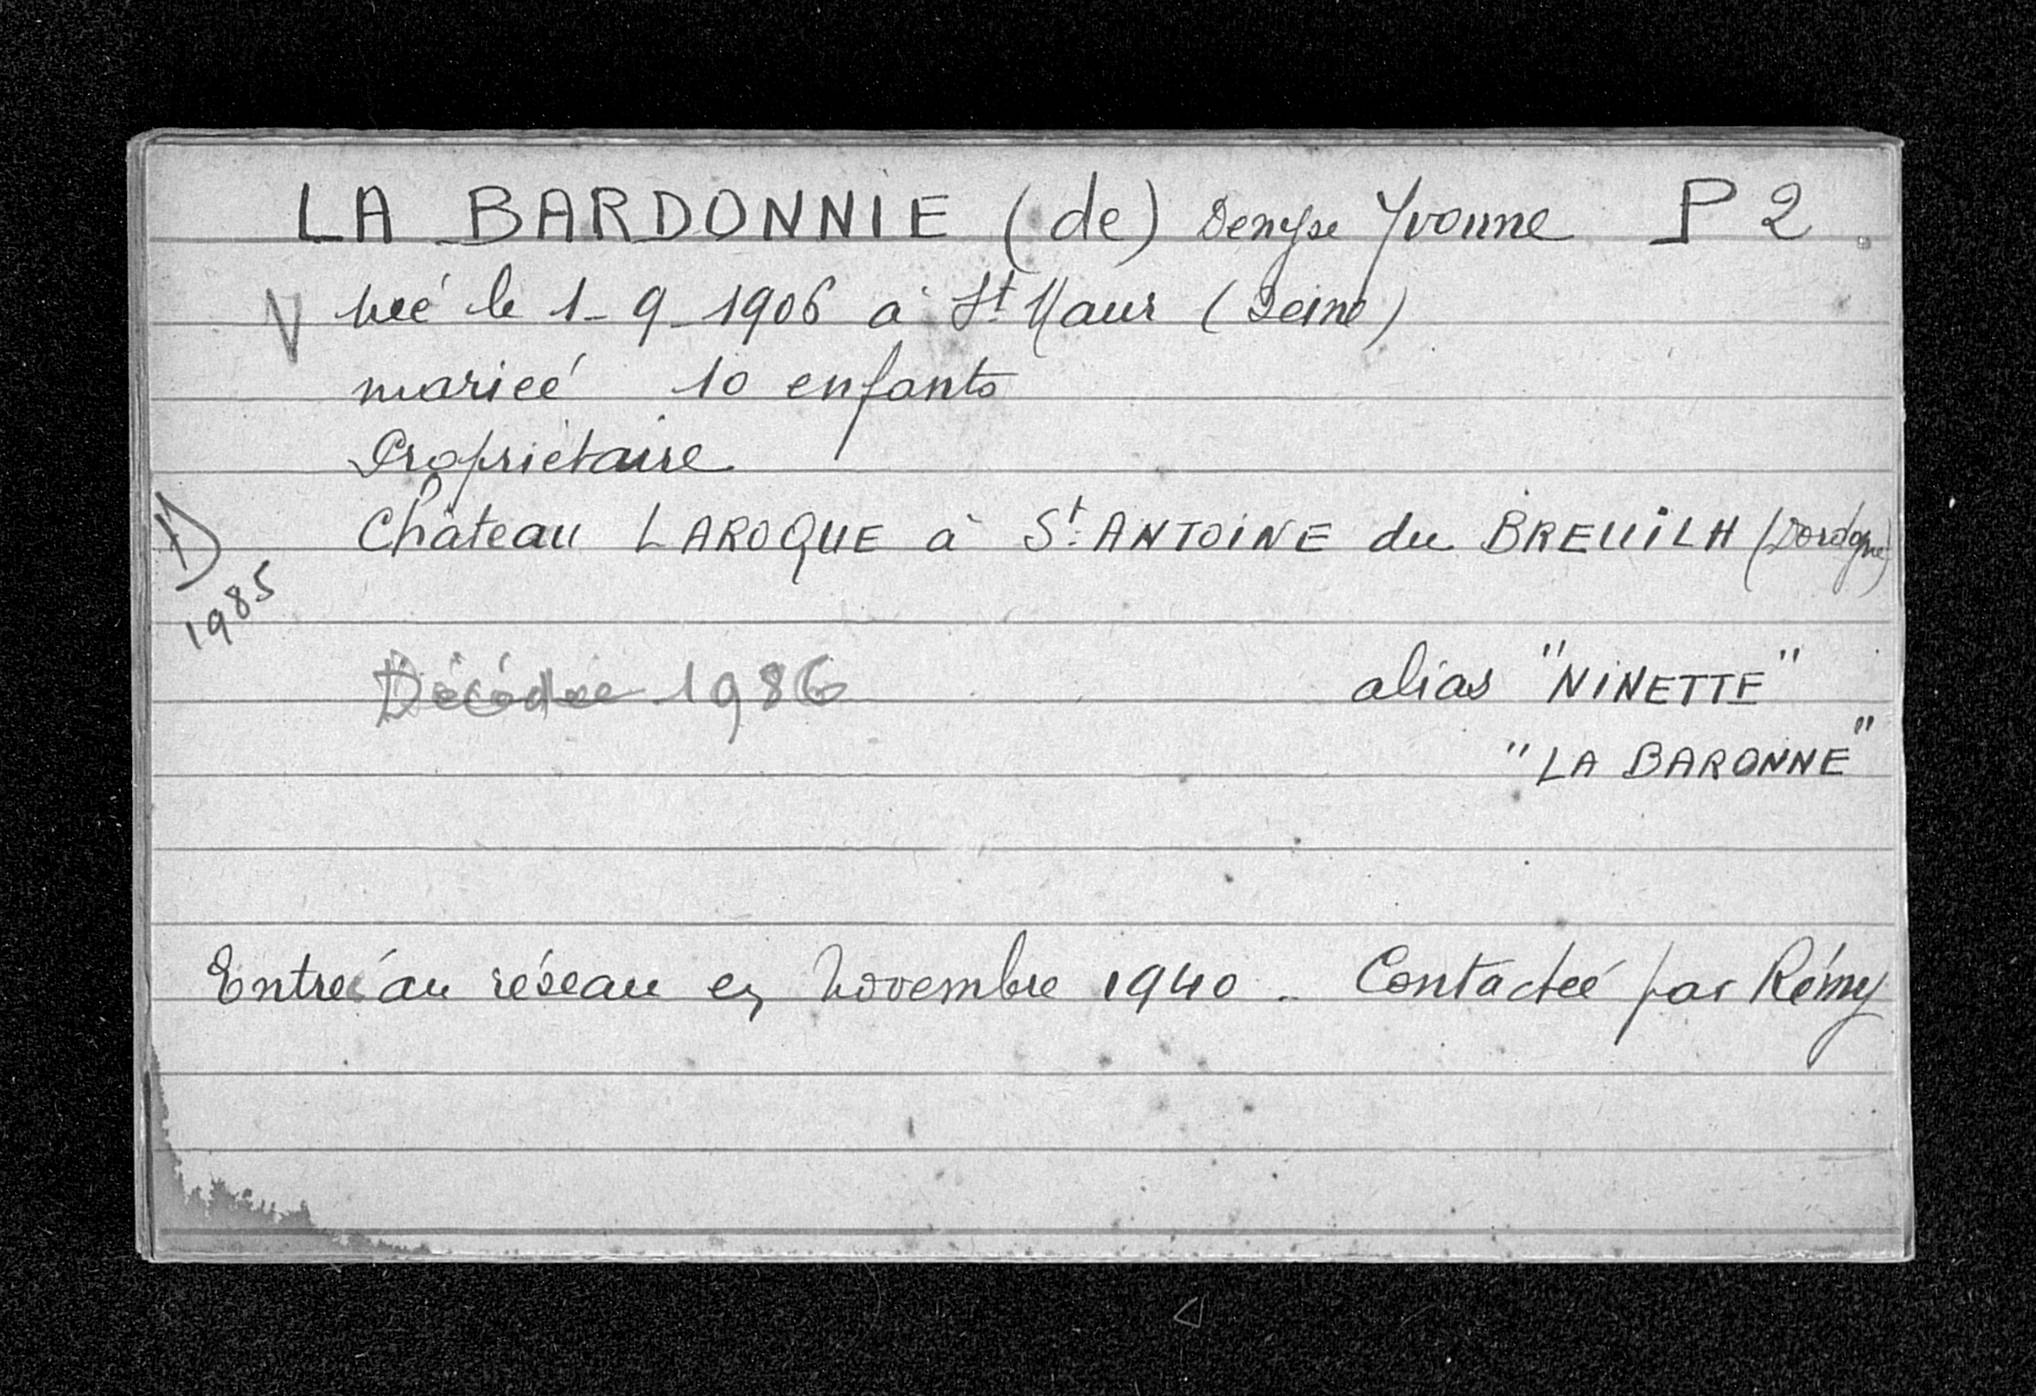 LA BARDONNIE (de) Denyse Yvonne P2
V née le 1-9-1906 à St Maur (Seine)
mariée 10 enfants
Propriétaire
Château LAROQUE à St. ANTOINE du BREUILH (Dordogne)
D
1985
Décédée 1986
alias "NINETTE"
"LA BARONNE"
Entrée au réseau en Novembre 1940. Contactée par Rémy